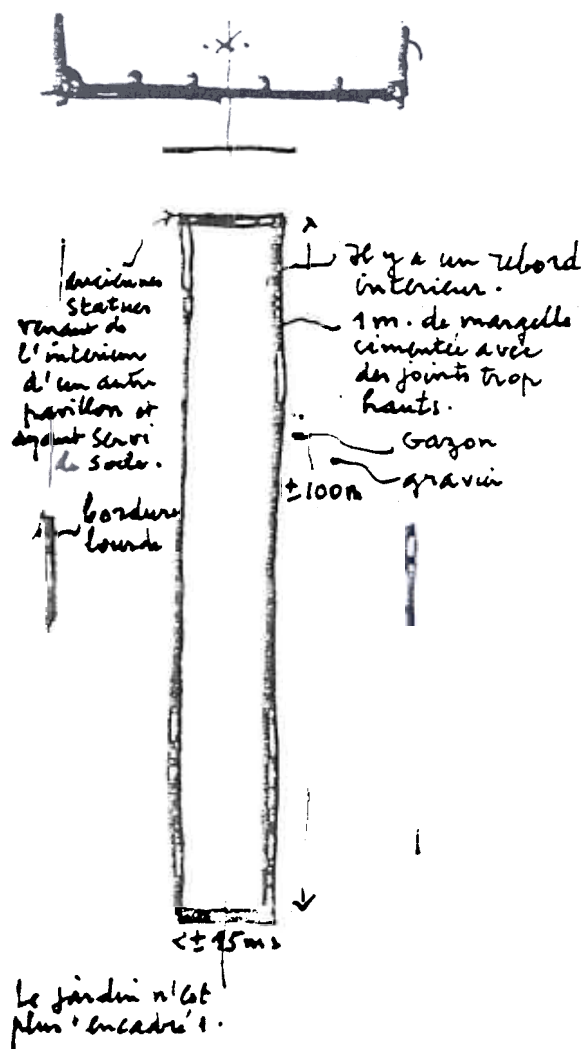 anciennes
statues
venant de
l'intérieur
d'un autre
pavillon et
ayant servi
de socle.
Il y a un rebord
intérieur.
1 m. de margelle
cimentée avec
des joints trop
hauts.
Gazon
gravier
±100m
bordure
lourde
<±15m>
Le jardin n'est
plus "encadré".